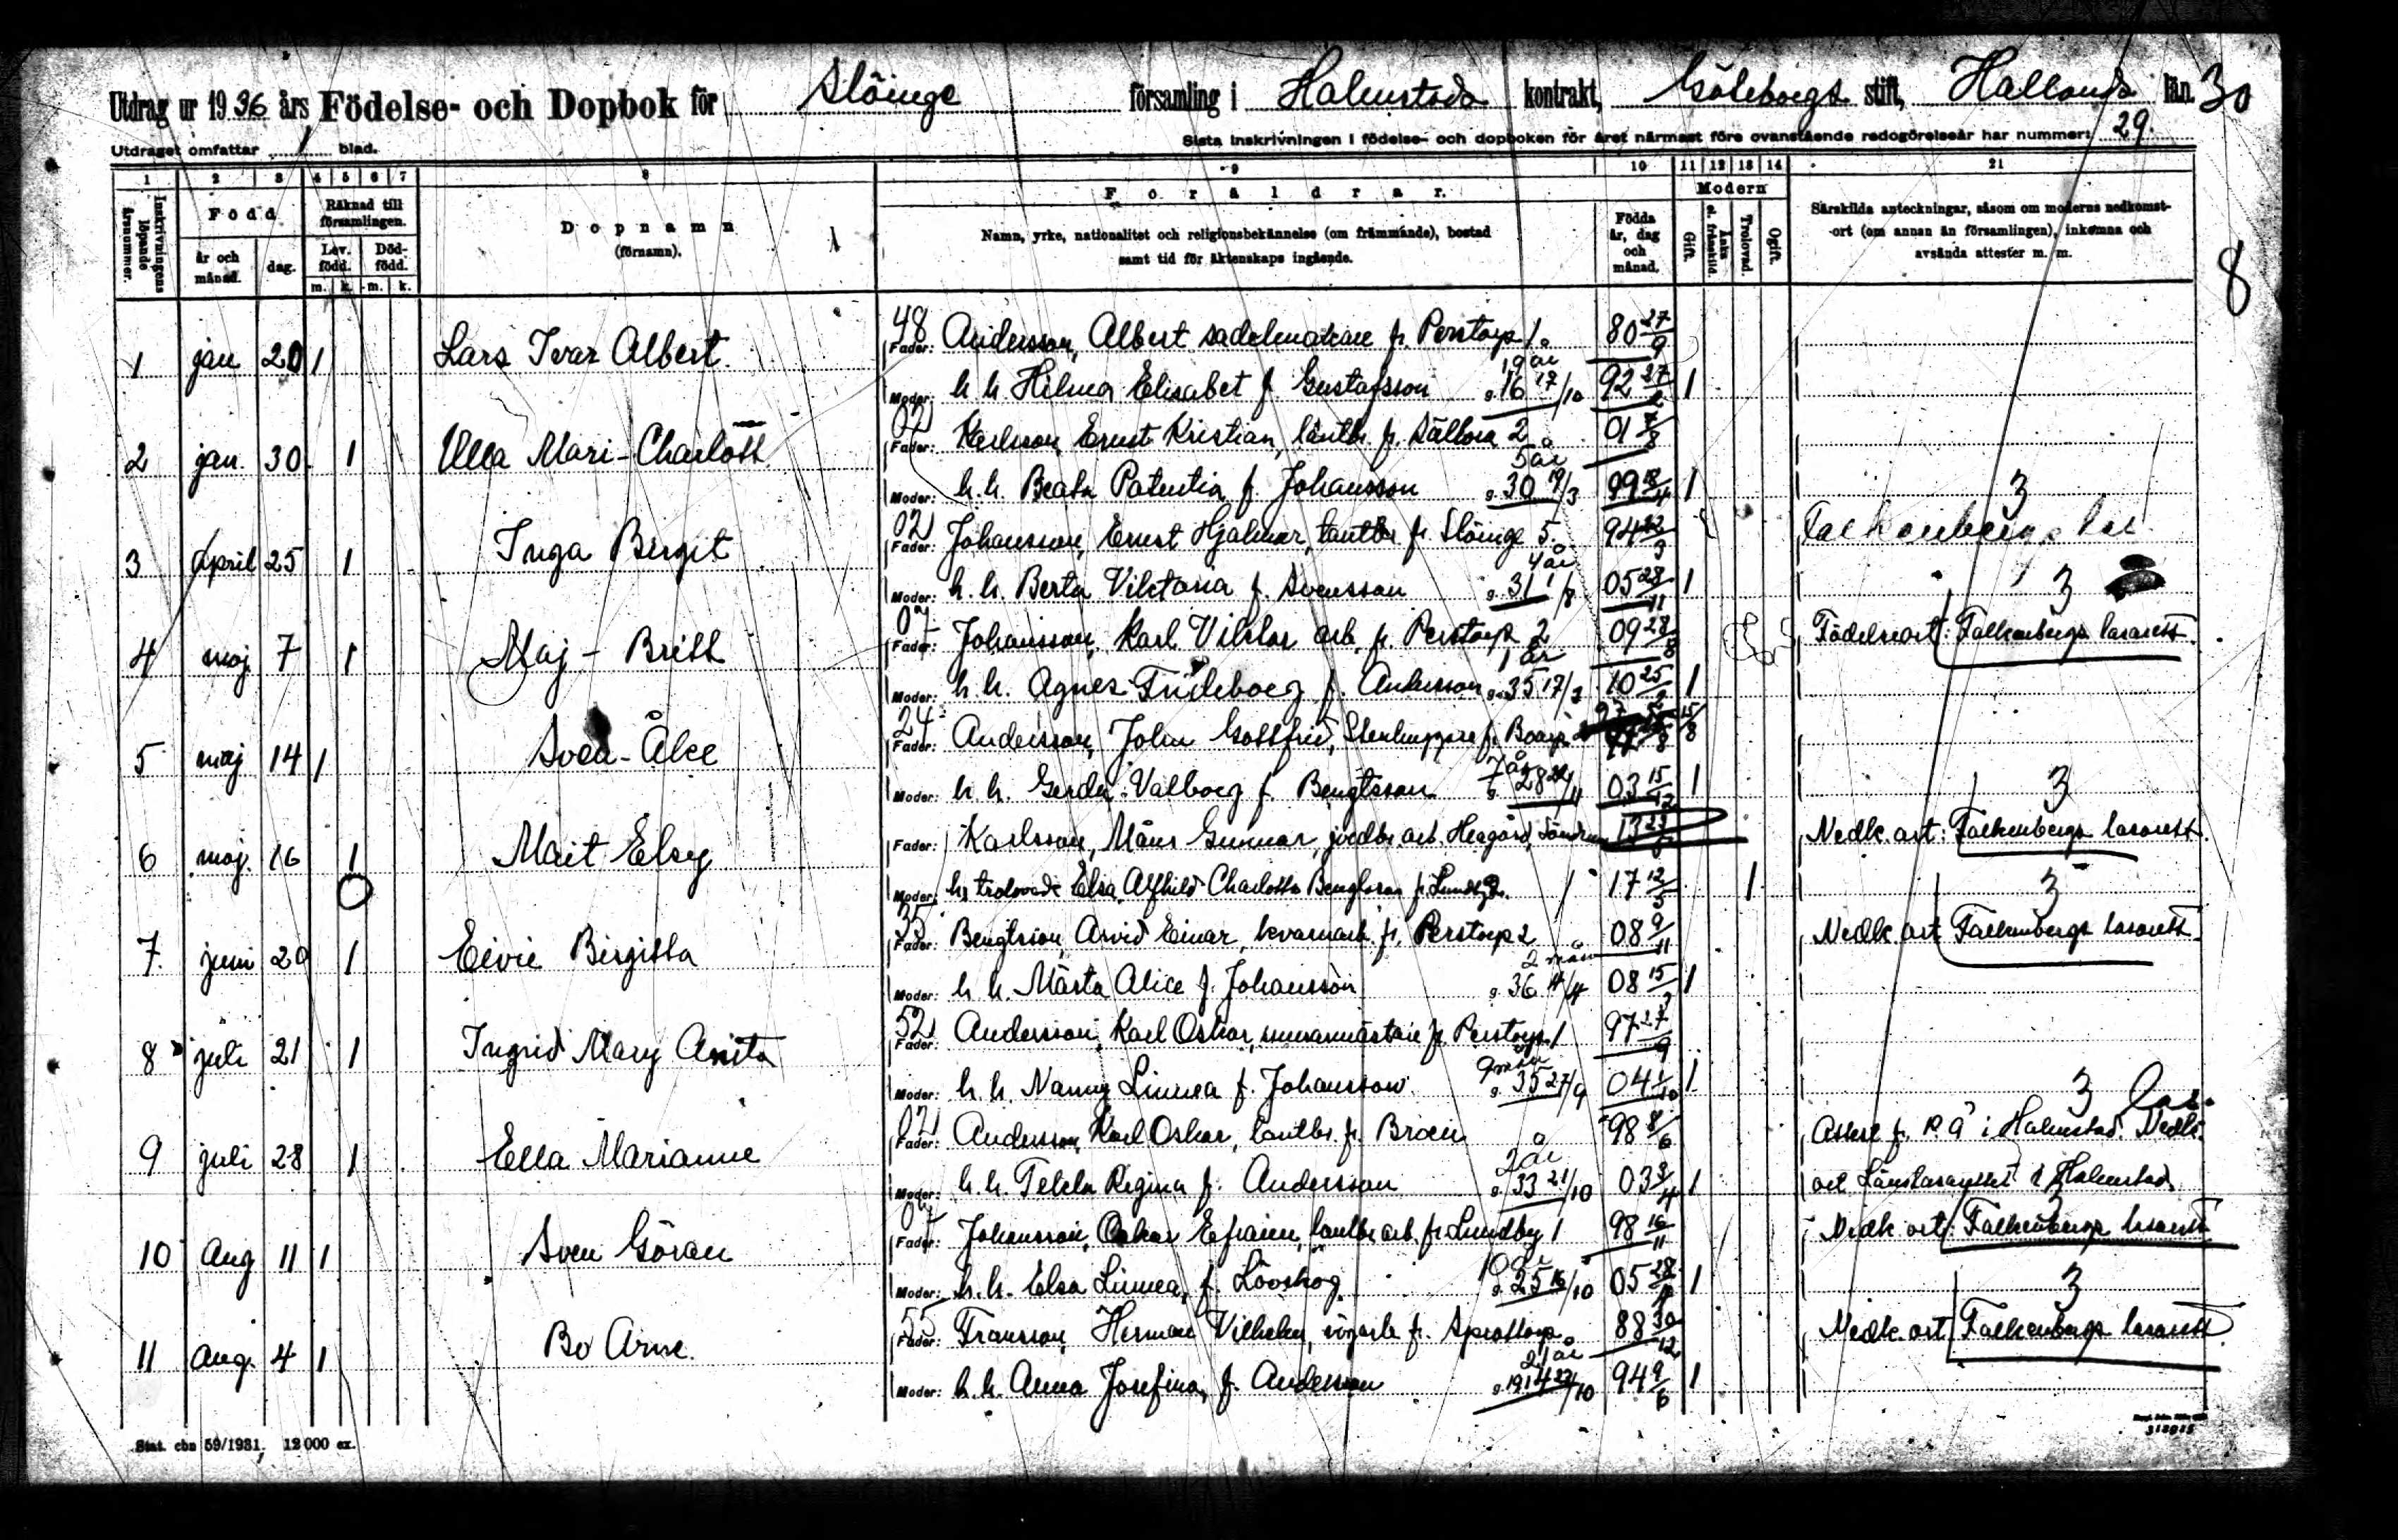 Utdrag ur 1936 års Födelse- och Dopbok för Slöinge församling i Halmstads kontrakt, Göteborgs stift, Hallands län. 30
Utdraget omfattar 1 blad. Sista inskrivningen i födelse- och dopboken för året närmast före ovanstående redogörelseår har nummer: 29.
1 2 3 4 5 6 7 8 9 10 11 12 13 14 21
Inskrivningens löpande årsnummer.
Född
år och månad. dag.
Räknad till församlingen.
Lev. född. Död-född.
m. k. m. k.
Dopnamn
(förnamn).
Föräldrar.
Namn, yrke, nationalitet och religionsbekännelse (om främmande), bostad
samt tid för äktenskaps ingående.
Födda år, dag och månad.
Modern
Gift. Änka el. frånskild. Trolovad. Ogift.
Särskilda anteckningar, såsom om moderns nedkomst-
ort (om annan än församlingen), inkomna och
avsända attester m. m.
8
48
Fader: Andersson, Albert sadelmakare fr. Perstorp 1 80 27/9
1 jan 20 1 Lars Ivar Albert
19 år
Moder: h. h. Hilma Elisabet f. Gustafsson g. 16 17/10 92 27/2 1
02
Fader: Karlsson, Ernst Kristian, lantbr. fr. 2 01
2 jan. 30 1 Ulla Mari-Charlott
5 år
Moder: h. h. Beata Patentia f. Johansson g. 30 19/3 99 18/4 1
3
02
Fader: Johansson, Ernst Hjalmar, lantbr. fr. Slöinge 5. 94 22/3 Falkenbergs las
3 April 25 1 Inga Birgit
4 år
Moder: h. h. Berta Viktoria f. Svensson g. 31 1/8 05 28/11 1
3
07
Fader: Johansson, Karl Viktor arb. fr. Perstorp 2 09 28/8 Födelseort: Falkenbergs lasarett.
4 maj 7 1 Maj-Britt
1 år
Moder: h. h. Agnes Frideborg f. Andersson g. 35 17/2 10 25/2 1
24
Fader: Andersson, John Gottfrid, Stenhuggare fr. Boarp 15/8
5 maj 14 1 Sven-Åke
7 år
Moder: h. h. Gerda Valborg f. Bengtsson g. 28 /11 03 15/12 1
3
Fader: Karlsson, Måns Gunnar, jordbr. arb. Heagård, Söndrum 13 Nedk. ort: Falkenbergs lasarett.
6 maj. 16 1 Mait Elsy
Moder: h. trolovade Elsa Alfhild Charlotta Bengtsson fr. Lundby 17 12/5 1
3
35
Fader: Bengtsson, Arvid Einar, kvarnarb. fr. Perstorp 2 08 9/11 Nedk. ort Falkenbergs lasarett.
7. juni 20 1 Eivie Birgitta
2 mån
Moder: h. h. Märta Alice f. Johansson g. 36 /4 08 15/3 1
52
Fader: Andersson, Karl Oskar, murarmästare fr. Perstorp 1 97 27/9
8 juli 21 1 Ingrid Mary Anita
9 mån
Moder: h. h. Nanny Linnea f. Johansson g. 35 27/9 04 1/10 1
3 las.
02
Fader: Andersson, Karl Oskar, lantbr. fr. Broen 98 8/6 Attest f. P. Ä i Halmstad. Nedk.
9 juli 28 1 Ella Marianne
2 år
Moder: h. h. Tekla Regina f. Andersson g. 33 21/10 03 3/4 1 ort Länslasarettet i Halmstad.
Fader: Johansson, Oskar Efraim, lantbr. arb. fr. Lundby 1 98 16/11 Nedk. ort: Falkenbergs lasarett
10 Aug 11 1 Sven Göran
10 år
Moder: h. h. Elsa Linnea, f. Lövskog g. 25 16/10 05 28/4 1
3
55
Fader: Fransson, Herman Vilhelm, vägarb. fr. 88 30/12 Nedk. ort Falkenbergs lasarett
11 Aug. 4 1 Bo Arne.
21 år
Moder: h. h. Anna Josefina, f. Andersson g. 1914 23/10 94 9/6 1
Stat. cbn 59/1931, 12 000 ex.